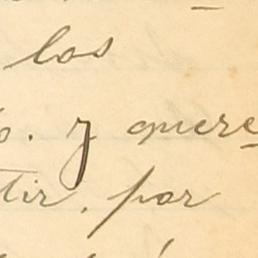 los
o. y quere
tir, por